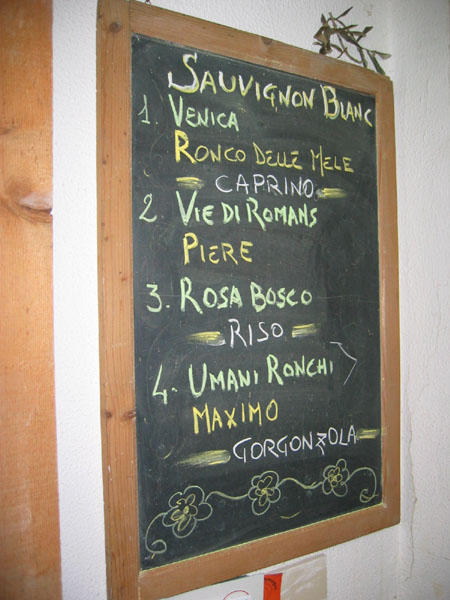 SAUVIGNON BLANC
1. VENICA
RONCO DELLE MELE
CAPRINO
2. VIE DI ROMANS
PIERE
3. ROSA BOSCO
RISO
4. UMANI RONCHI
MAXIMO
GORGONZOLA